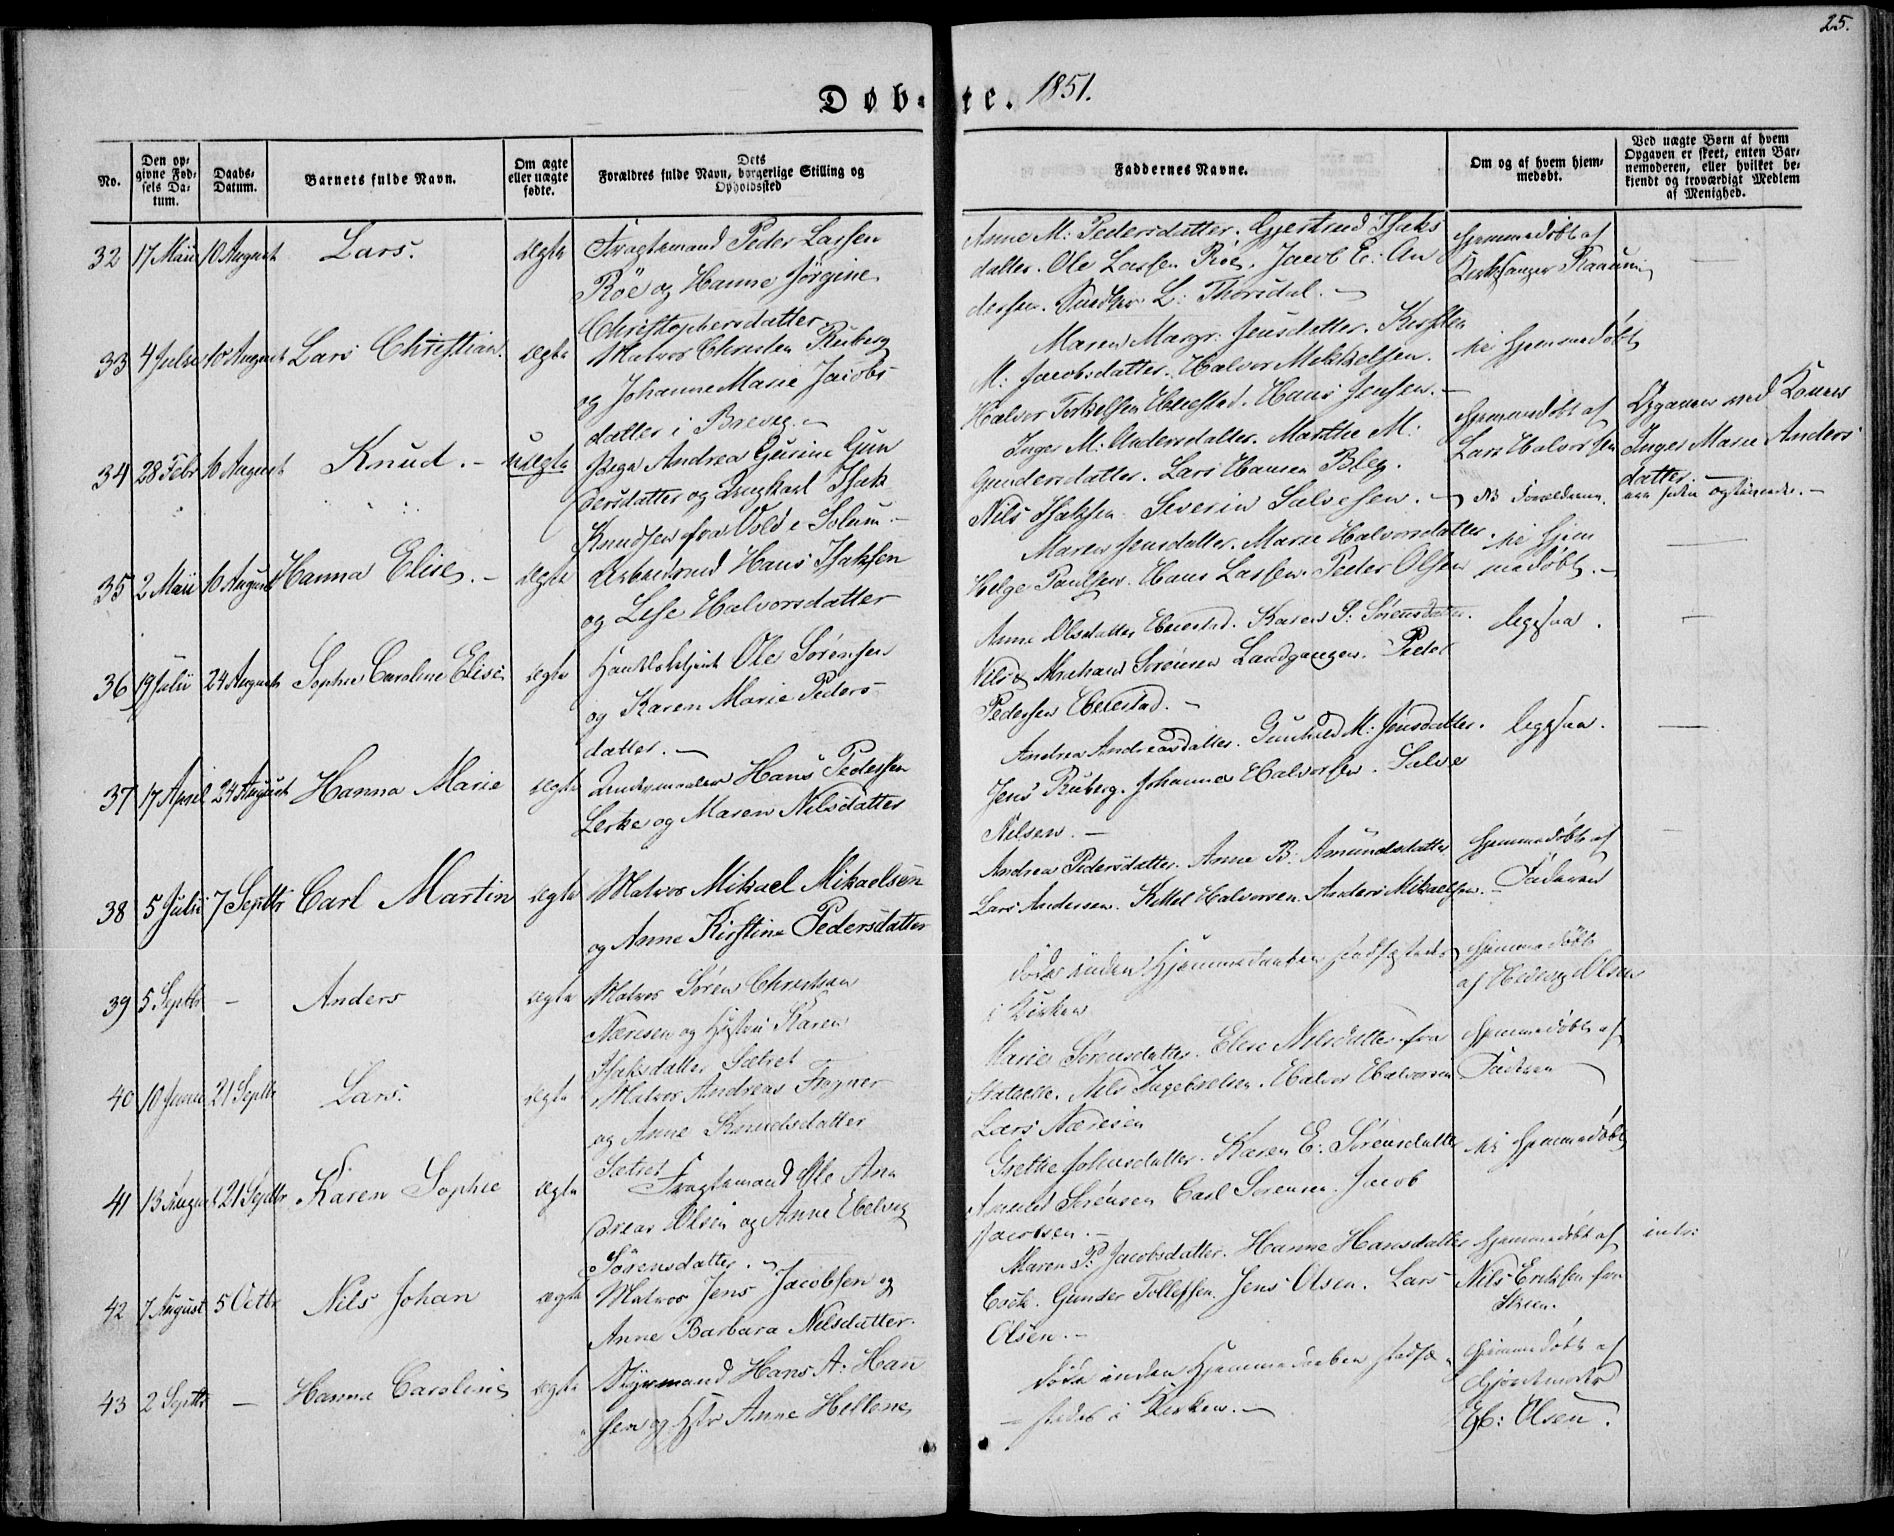 25.
Døbte. 1851.
No.
Den opgivne Fødsels Datum.
Daabs-Datum.
Barnets fulde Navn.
Om ægte eller uægte fødte.
Dets Forældres fulde Navn, borgerlige Stilling og Opholdssted
Faddernes Navne.
Om og af hvem hjemmedøbt.
Ved uægte Børn af hvem Opgaven er skeet, enten Barnemoderen, eller hvilket bekjendt og troværdigt Medlem af Menighed.
32 17 Mai 10 August Lars. ægte Fragtemand Peder Larsen
Röe og Hanne Jörgine
Christophersdatter
Anne M: Pedersdatter. Gjertrud Isaks
datter. Ole Larsen Röe. Jacob E: An
dersen. L: Thorsdal. –
hjemmedøbt af
Kirkesanger
33 4 Juli 10 August Lars Christian. ægte Matros Christen Ruberg
og Johanne Marie Jacobs
datter i Brevig. –
Maren Margr. Jensdatter. Kirsten
M: Jacobsdatter. Halvor Mikkelsen.
Halvor Torkelsen Eidestad. Hans Jensen. –
ei hjemmedøbt
34 28 Febr 10 August Knud. – uægte Pige Andrea Gurine Gun
dersdatter og Ungkarl Isak
Knudsen fra Vold i Solum. –
Inger M: Andersdatter. Marthe M:
Gundersdatter. Lars Hansen Bleg.
Nils Isaksen. Severin Salvesen. –
hjemmedøbt af
Lars Halvorsen
Opgaven ved Konen
Inger Marie Anders
datter
35 2 Mai 10 August Hanna Elise. – ægte Arbeidsmd Hans Isaksen
og Lise Halvorsdatter
Maren Jensdatter. Marie Halvorsdatter.
Helge Paulsen. Hans Larsen. Peder Olsen
ei hjem
medøbt. –
36 19 Juli 24 August Sophie Caroline Elise ægte Ole Sörensen
og Karen Marie Peders
datter. –
Anne Olsdatter Eidestad. Karen S: Sörensdatter.
Nils Abraham Sörensen Landgangen. Peder
Pedersen Eidestad. –
ligesaa.
37 17 April 24 August Hanna Marie ægte Hans Pedersen
Lerke og Maren Nilsdatter
Andrea Andreasdatter. Gunhild M: Jensdatter.
Jens Ruberg. Johannes Halvorsen. Salve
Nilsen. –
ligesaa.
38 5 Juli 7 Septbr Carl Martin ægte Matros Mikael Mikaelsen
og Anne Kirstine Pedersdatter
Andrea Pedersdatter. Anne B. Amundsdatter
Lars Andersen. Kittel Halvorsen. Anders Mikaelsen. –
hjemmedøbt af
Faderen
39 5 Septbr – Anders ægte Matros Sören Christian
Næresen og Hustru Karen
Isaksdatter Sætret
döde inden Hjemmedaaben stadfæstedes
i Kirken
hjemmedøbt
af Hedevig Olsen
40 10 Juni 21 Septbr Lars. ægte Matros Andreas Fragner
og Anne Knudsdatter
Sætret
Marie Sörensdatter. Elise Nilsdatter fra
Stathelle. Nils Ingebretsen. Halvor Halvorsen
Lars Næresen
hjemmedøbt af
Faderen
41 13 August 21 Septbr Karen Sophie ægte Fragtemand Ole An
dreas Olsen og Anne Hedvig
Sörensdatter. –
Grethe Johnsdatter. Karen E: Sörensdatter
Amund Sörensen Carl Sörensen. Jacob
Jacobsen. –
ei hjemmedøbt
42 7 August 5 Octbr Nils Johan ægte Matros Jens Jacobsen og
Anne Barbara Nilsdatter.
Maren P: Jacobsdatter. Hanne Hansdatter
Gunder Tollefsen. Jens Olsen. Lars
Olsen. –
hjemmedøbt af
Nils Eriksen fra
Skien.
43 2 Septbr – Hanna Caroline ægte Styrmand Hans A: Han
sen og Hstr Anne Hellene
döde inden Hjemmedaaben stadfæ
stedes i Kirken. –
hjemmedøbt af
Gjordemoder
Olsen.